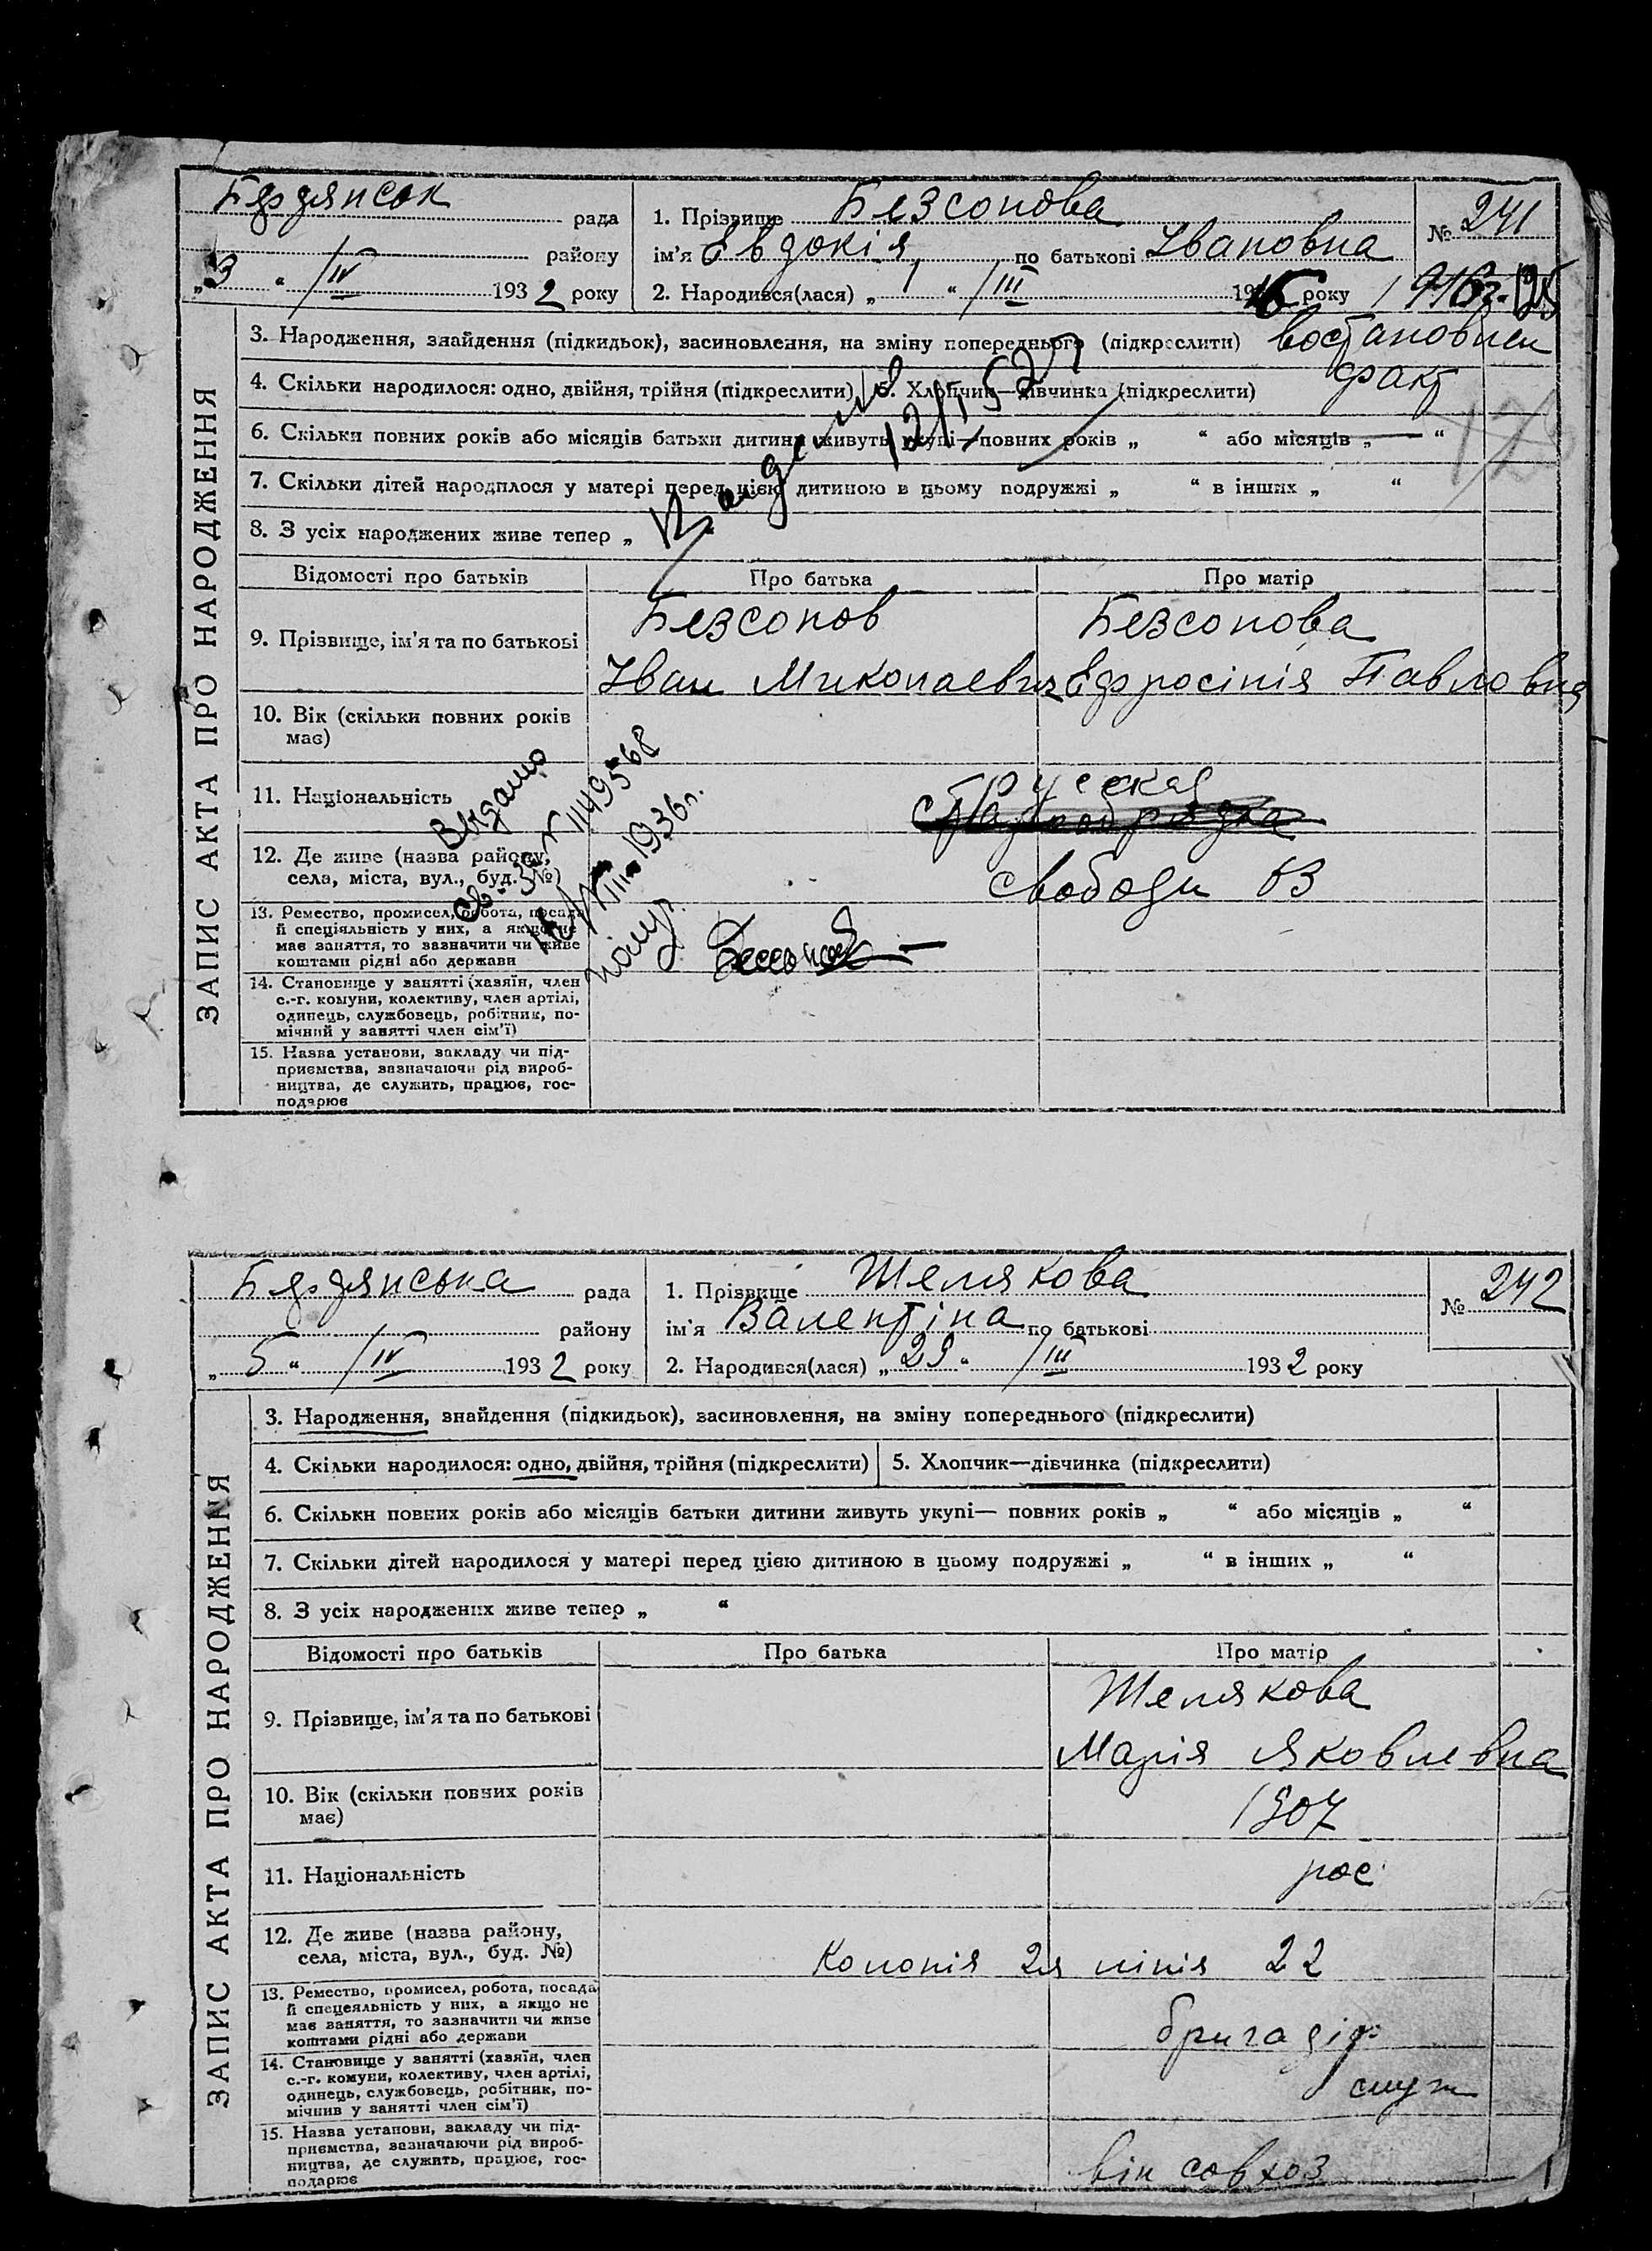 Бердянськ рада
району
„3“ /IV 1932 року
1. Прізвище Безсонова
ім'я Евдокія по батькові Івановна
2. Народився(лася) „1“ /III 1916 року 1916г.
№ 241
ЗАПИС АКТА ПРО НАРОДЖЕННЯ
3. Народження, знайдення (підкидьок), засиновлення, на зміну попереднього (підкреслити) востановлен
факт
4. Скільки народилося: одно, двійня, трійня (підкреслити) 5. Хлопчик—дівчинка (підкреслити)
6. Скільки повних років або місяців батьки дитини живуть укупі— повних років „ “ або місяців „ — “
7. Скільки дітей народилося у матері перед цією дитиною в цьому подружжі „ “ в інших „ “
8. З усіх народжених живе тепер „
Відомості про батьків Про батька Про матір
9. Прізвище, ім'я та по батькові
Безсонов Безсонова
Іван Миколаевич Ефросінія Павловна
10. Вік (скільки повних років
має)
11. Національність русская
12. Де живе (назва району,
села, міста, вул., буд. №)
Свободи 63
Видано
св. за № 1149568
VIII 1936 г.
13. Ремество, промисел, робота, посада
й спеціяльність у них, а якщо не
має заняття, то зазначити чи живе
коштами рідні або держави
14. Становище у занятті (хазяїн, член
с.-г. комуни, колективу, член артілі,
одинець, службовець, робітник, по-
мічний у занятті член сім'ї)
15. Назва установи, закладу чи під-
приємства, зазначаючи рід вироб-
ництва, де служить, працює, гос-
подарює
Бердянська рада
району
„5“ /IV 1932 року
1. Прізвище Шелякова
ім'я Валентіна по батькові
2. Народився(лася) „29“ /III 1932 року
№ 242
ЗАПИС АКТА ПРО НАРОДЖЕННЯ
3. Народження, знайдення (підкидьок), засиновлення, на зміну попереднього (підкреслити)
4. Скільки народилося: одно, двійня, трійня (підкреслити) 5. Хлопчик—дівчинка (підкреслити)
6. Скільки повних років або місяців батьки дитини живуть укупі— повних років „ “ або місяців „ “
7. Скільки дітей народилося у матері перед цією дитиною в цьому подружжі „ “ в інших „ “
8. З усіх народжених живе тепер „ “
Відомості про батьків Про батька Про матір
9. Прізвище, ім'я та по батькові
Шелякова
Марія Яковлевна
10. Вік (скільки повних років
має)
1907
11. Національність рос
12. Де живе (назва району,
села, міста, вул., буд. №)
Колонія 2я лінія 22
13. Ремество, промисел, робота, посада
й спецеяльність у них, а якщо не
має заняття, то зазначити чи живе
коштами рідні або держави
бригадір
14. Становище у занятті (хазяїн, член
с.-г. комуни, колективу, член артілі,
одинець, службовець, робітник, по-
мічнив у занятті член сім'ї)
служ
15. Назва установи, закладу чи під-
приємства, зазначаючи рід вироб-
ництва, де служить, працює, гос-
подарює
він совхоз